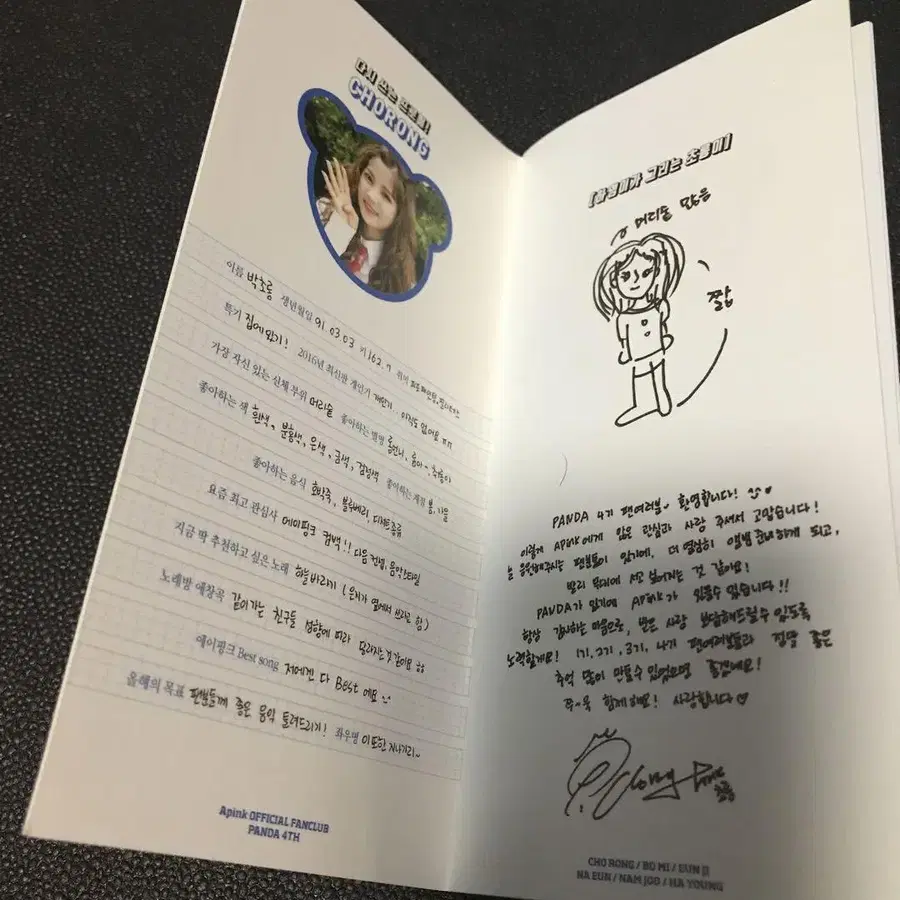 다시 쓰는 프로필!
CHORONG
이름 박초롱 생년월일 91.03.03 키 162.7 취미
특기 집에 있기! 2016년 최신판 개인기 개인기.. 아직도 없어요 ㅠㅠ
가장 자신 있는 신체 부위 머리숱 좋아하는 별명 롱언니, 롱아~
좋아하는 색 흰색, 분홍색, 은색, 금색, 검정색 좋아하는 계절 봄, 가을
좋아하는 음식 호박죽, 블루베리, 디저트종류
요즘 최고 관심사 에이핑크 컴백!! 다음 컨셉, 음악스타일
지금 딱 추천하고 싶은 노래 하늘바라기 (은지가 옆에서 쓰라고 함)
노래방 애창곡 같이가는 친구들 성향에 따라 달라지는 것 같아요 ㅎㅎ
에이핑크 Best song 저에겐 다 Best 예요
올해의 목표 팬분들께 좋은 음악 들려드리기! 좌우명 이또한 지나가리~
Apink OFFICIAL FANCLUB
PANDA 4TH
[하영이가 그리는 초롱이]
머리숱 많음
짧
PANDA 4기 팬여러분~ 환영합니다! ♥
이렇게 Apink에게 많은 관심과 사랑 주셔서 고맙습니다!
늘 응원해주시는 팬분들이 있기에, 더 열심히 앨범 준비하게 되고,
빨리 무대에 서고 싶어지는 것 같아요!
PANDA가 있기에 Apink가 있을수 있습니다!!
항상 감사하는 마음으로, 받은 사랑 보답해드릴수 있도록
노력할게요! 1기, 2기, 3기, 4기 팬여러분들과 정말 좋은
추억 많이 만들수 있었으면 좋겠네요!
쭈-욱 함께해요! 사랑합니다♡
CHO RONG / BO MI / EUN JI
NA EUN / NAM JOO / HA YOUNG